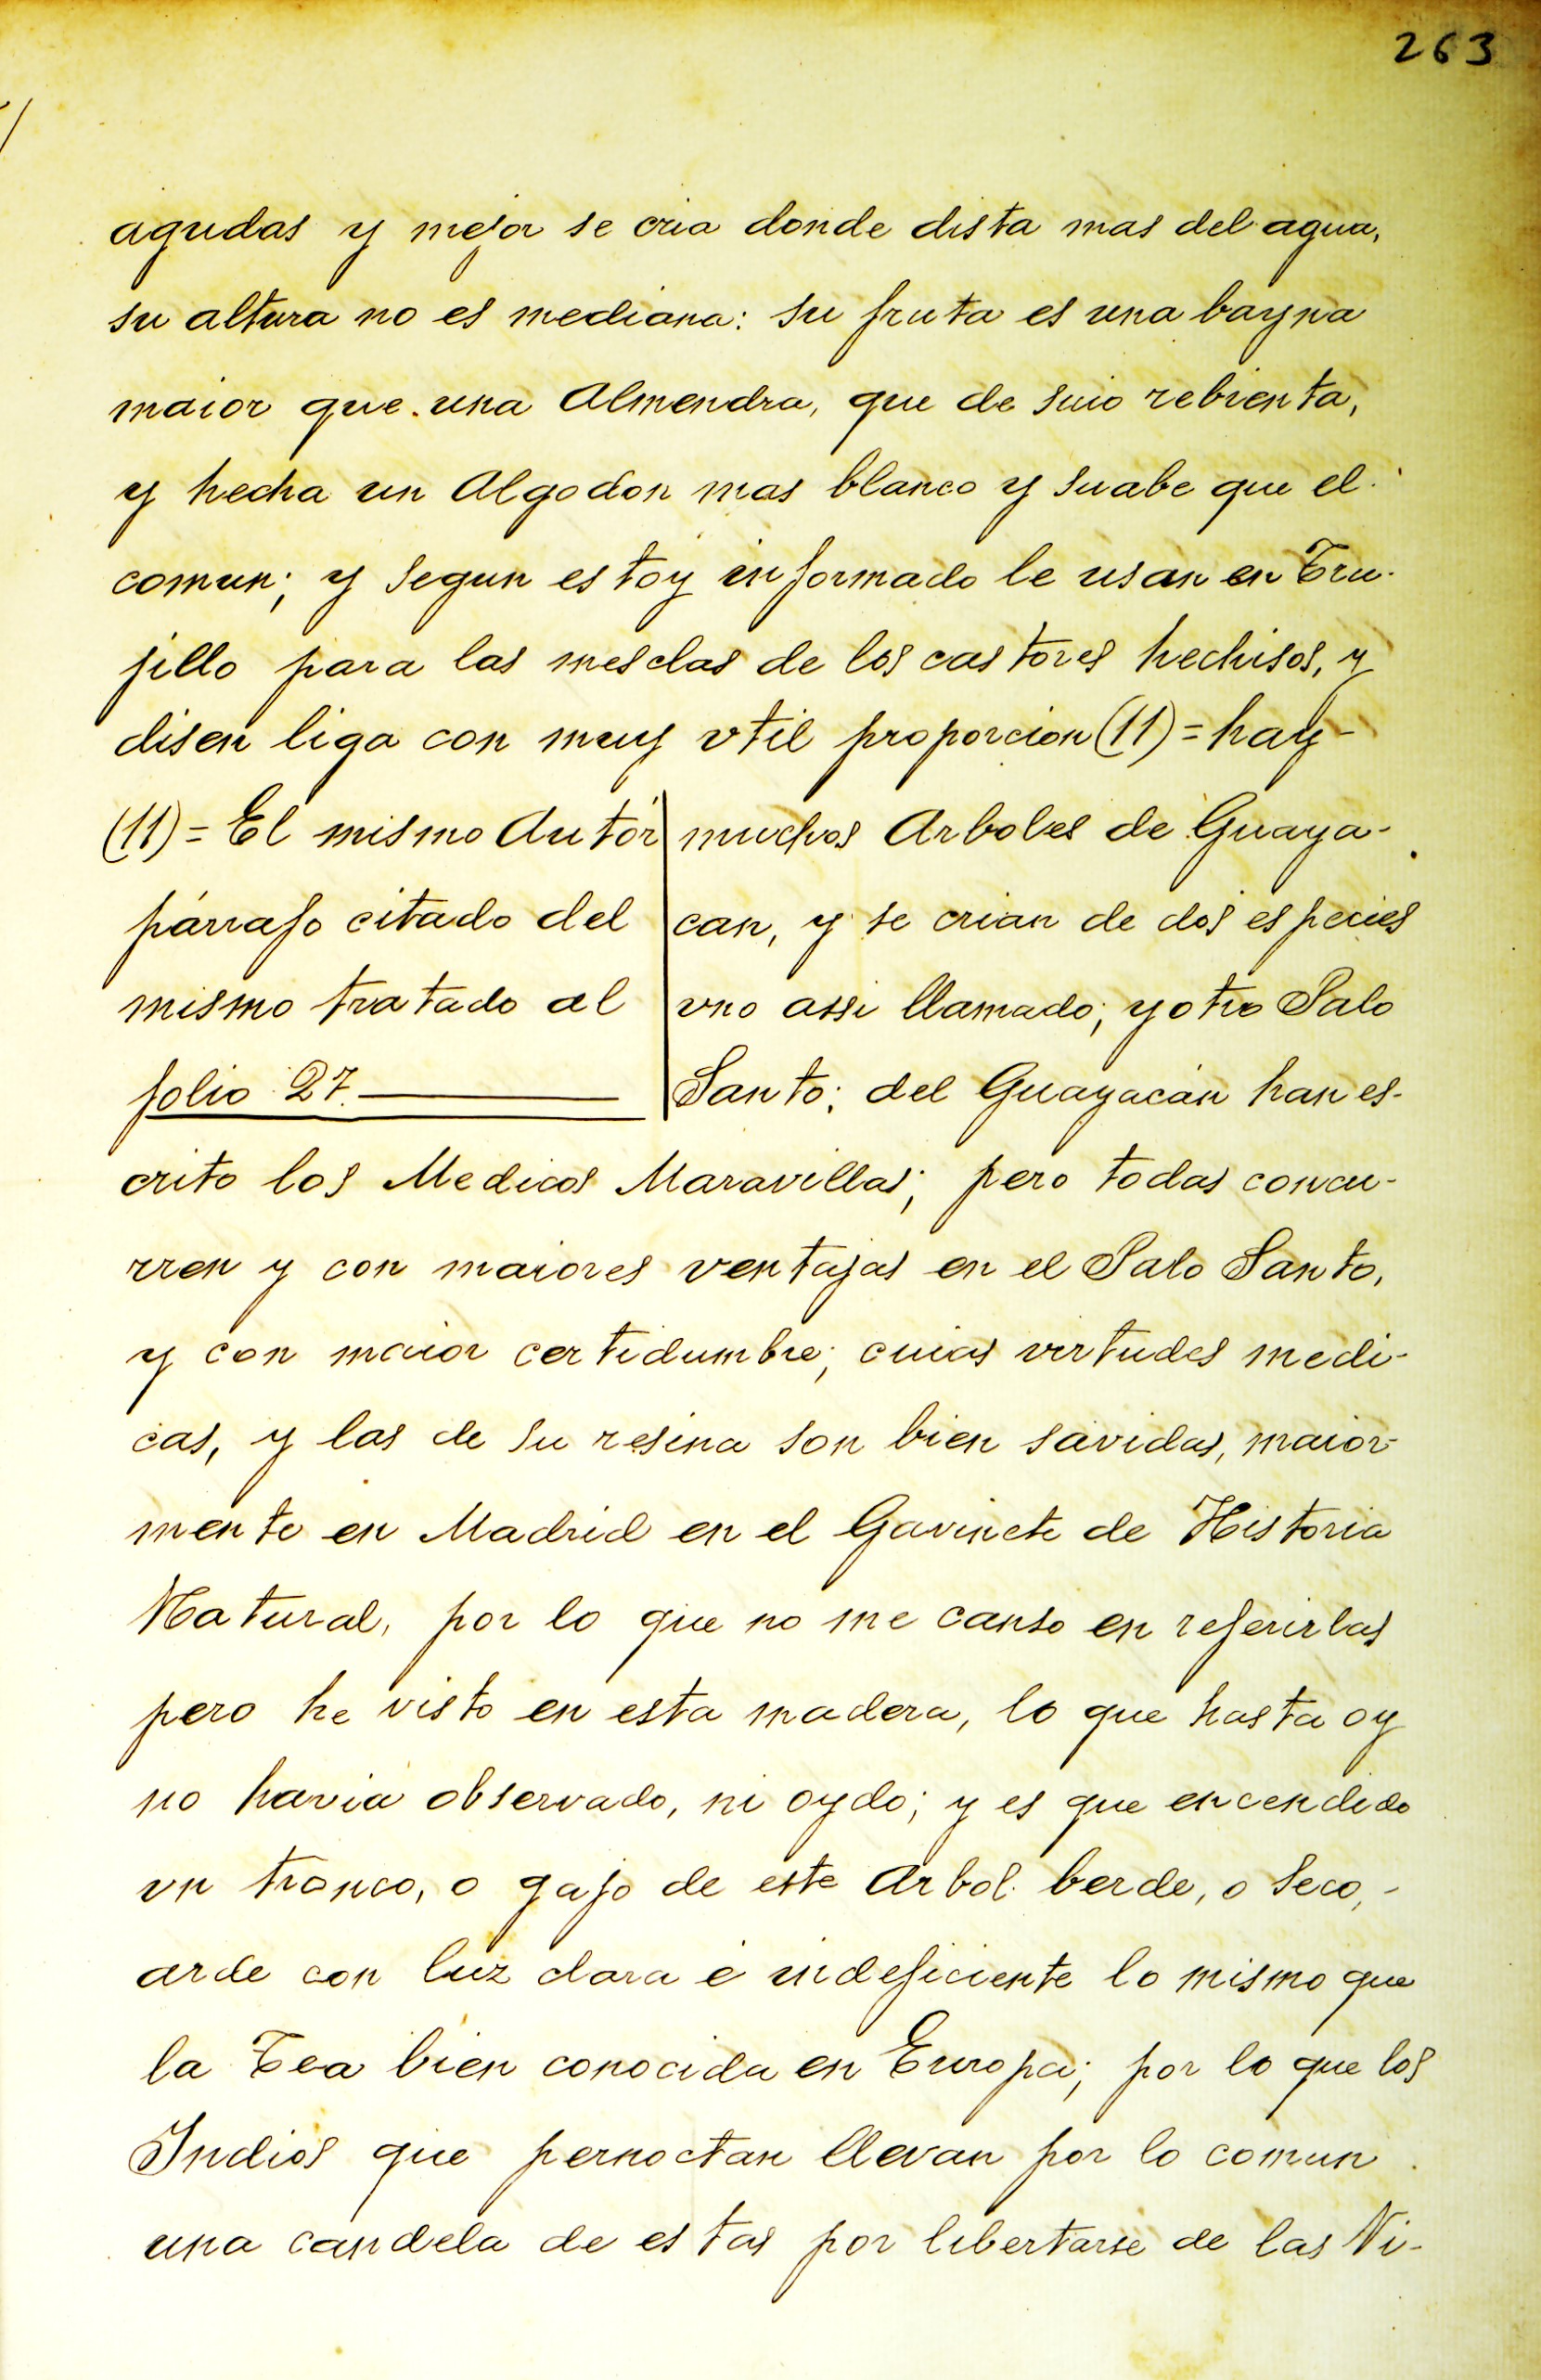 263
agudas y mejor se cria donde dista mas del agua,
su altura no es mediana: su fruta es una bayna
maior que una Almendra, que de suio rebienta,
y hecha un Algodon mas blanco y suabe que el
comun; y segun estoy informado le usan en Tru-
jillo para las mesclas de los castores hechisos, y
disen liga con muy vtil proporcion (11) = hay-
(11) = El mismo Autór
párrafo citado del
mismo tratado al
folio 27.
muchos Arboles de Guaya-
can, y se crian de dos especies
vno assi llamado; y otro Palo
Santo; del Guayacán han es-
crito los Medicos Maravillas; pero todas concu-
rren y con maiores ventajas en el Palo Santo,
y con maior certidumbre; cuias virtudes medi-
cas, y las de su resina son bien savidas, maior-
mente en Madrid en el Gavinete de Historia
Natural, por lo que no me canso en referirlas
pero he visto en esta madera, lo que hasta oy
no havia observado, ni oydo; y es que encendido
vn tronco, o gajo de este Arbol berde, o seco,-
arde con luz clara é indeficiente lo mismo que
la Tea bien conocida en Europa; por lo que los
Indios que pernoctan llevan por lo comun
una candela de estas por libertarse de las Ni-